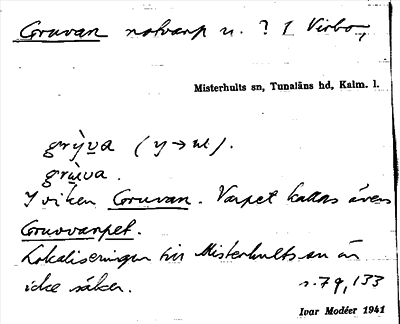 Gruvan notvarp n. ? 1 Virbo,
Misterhults sn, Tunaläns hd, Kalm. l.
grỳva (y→u).
grùva.
I viken Gruvan. Varpet kallas även
Gruvvarpet.
Lokaliseringen till Misterhults sn är
icke säker.
s. 79, 133
Ivar Modéer 1941